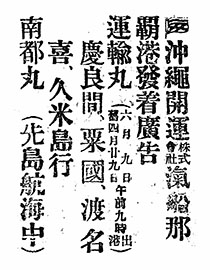 沖繩開運株式會社汽船那
覇港發着廣告
運輸丸（六月九日午前九時出港
舊四月廿九日
慶良間、粟國、渡名
喜、久米島行
南都丸（先島航海中）